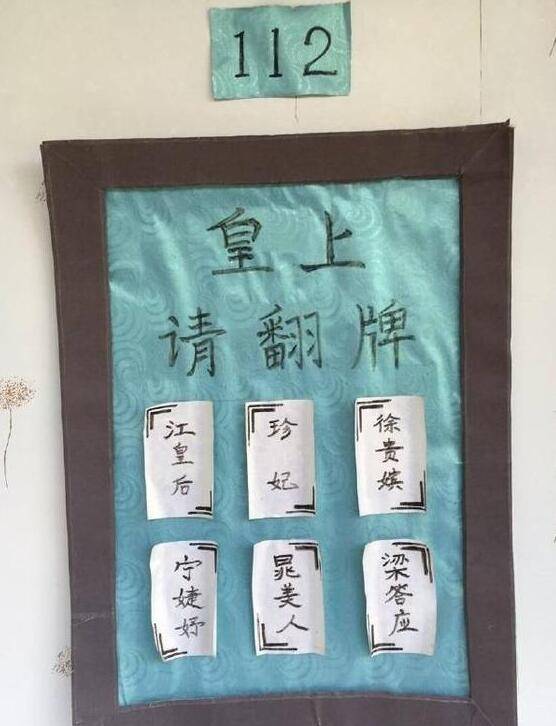 112
皇上
请翻牌
江皇后
珍妃
徐贵嫔
宁婕妤
晁美人
梁答应